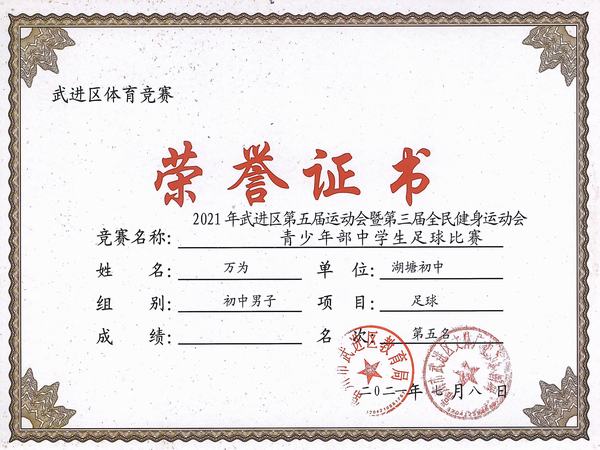 武进区体育竞赛
荣誉证书
2021年武进区第五届运动会暨第三届全民健身运动会
竞赛名称: 青少年部中学生足球比赛
姓 名: 万为 单 位: 湖塘初中
组 别: 初中男子 项 目: 足球
成 绩: 名 次: 第五名
常州市武进区教育局
二〇二一年七月八日